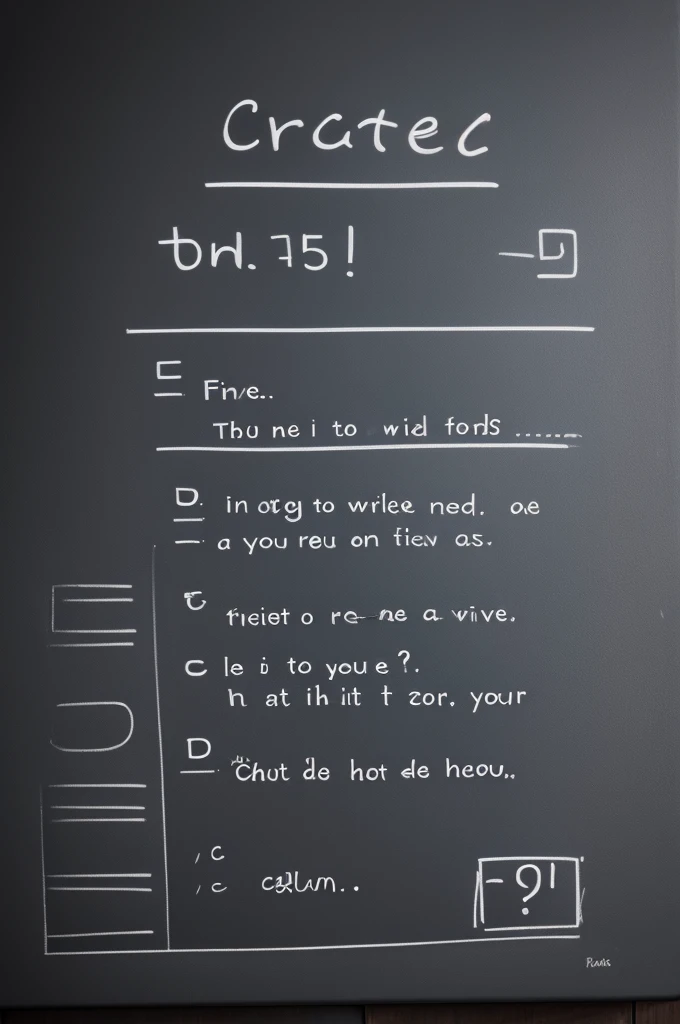 Crctec
tн. 75!
C Five..
Thu ne i to wid fords ........
D. in org to wrlee ned. oe
a you reu on fiev as.
C
o re-ne a vive.
C le i to you e?.
h at ih iit t zor. your
D Chut de hot de heou..
, C
, c
-?!